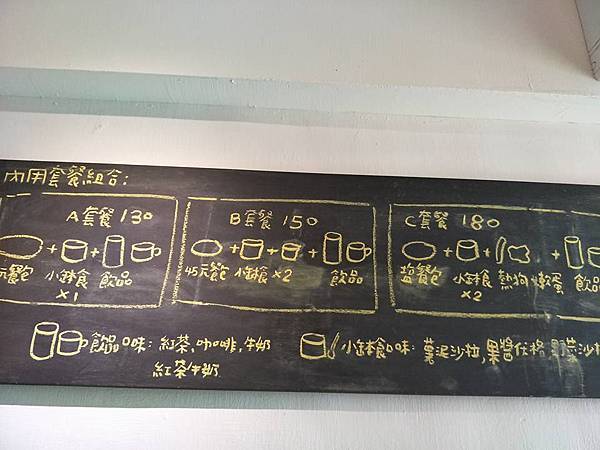 內用套餐組合:
A套餐 130
+ + 
元餐包 小缽食 飲品
×1
B套餐 150
+ + +
45元餐包 小缽食×2 飲品
C套餐 180
+ + +
鹽餐包 小缽食 熱狗 嫩蛋 飲品
×2
飲品口味: 紅茶, 咖啡, 牛奶
紅茶牛奶
小缽食口味: 薯泥沙拉, 果醬優格